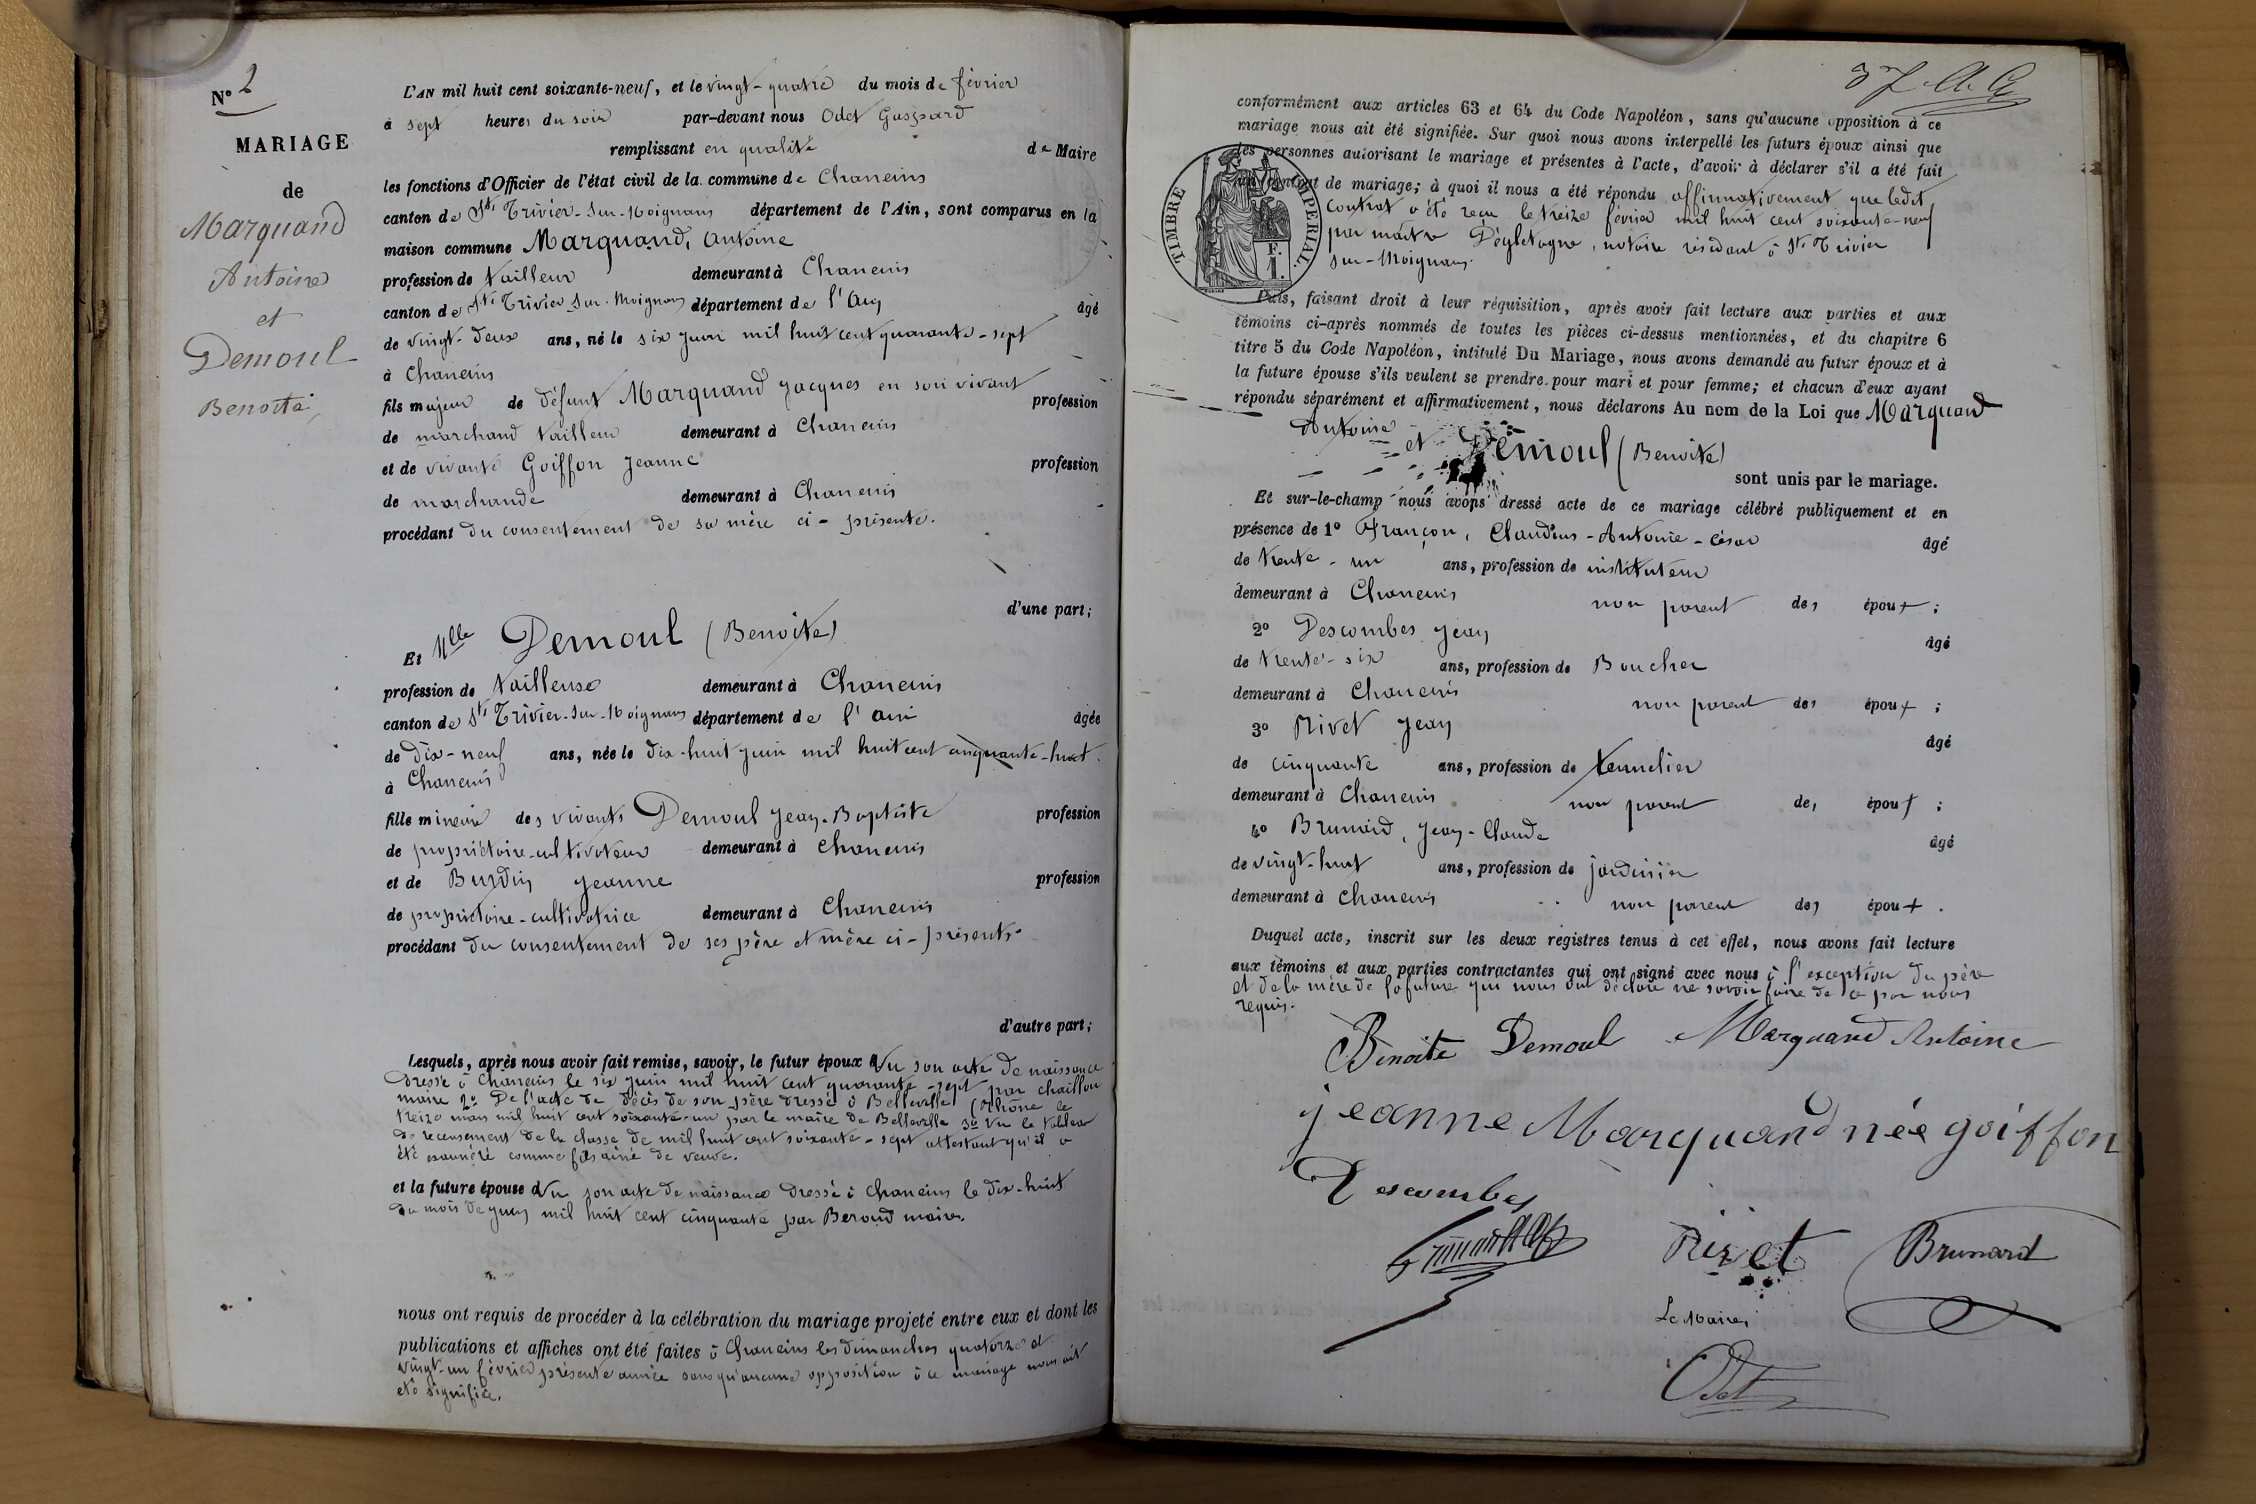 N° 2
MARIAGE
de
Marquand
Antoine
et
Demoul
Benoite
L'AN mil huit cent soixante-neuf, et le vingt-quatre du mois de février
à sept heures du soir par-devant nous Odet Gaspard
remplissant en qualité de Maire
les fonctions d'Officier de l'état civil de la commune de Chaneins
canton de St Trivier-sur-Moignans département de l'Ain, sont comparus en la
maison commune Marquand, Antoine
profession de tailleur demeurant à Chaneins
canton de St Trivier-sur-Moignans département de l'Ain âgé
de vingt-deux ans, né le six juin mil huit cent quarante-sept
à Chaneins
fils majeur de défunt Marquand Jacques en son vivant profession
de marchand tailleur demeurant à Chaneins
et de vivante Goiffon Jeanne profession
de marchande demeurant à Chaneins
procédant du consentement de sa mère ci-présente.
d'une part;
Et Mlle Demoul (Benoite)
profession de tailleuse demeurant à Chaneins
canton de St Trivier-sur-Moignans département de l'Ain âgée
de dix-neuf ans, née le dix-huit juin mil huit cent cinquante-huit.
à Chaneins
fille mineure des vivants Demoul Jean-Baptiste profession
de propriétoire-cultivateur demeurant à Chaneins
et de Burdin Jeanne profession
de propriétoire-cultivatrice demeurant à Chaneins
procédant du consentement de ses père et mère ci-présents.
d'autre part;
Lesquels, après nous avoir fait remise, savoir, le futur époux Vu son acte de naissance
dressé à Chaneins le six juin mil huit cent quarante-sept par Chaillon
maire 2° De l'acte de décès de son père dressé à Belleville (Rhône le
treize mars mil huit cent soixante-un par le maire de Belleville 3° Vu le tableau
de recensement de la classe de mil huit cent soixante-sept attestant qu'il a
été exonéré comme fils aîné de veuve.
et la future épouse Vu son acte de naissance dressé à Chaneins le dix-huit
du mois de juin mil huit cent cinquante par Beroud maire.
nous ont requis de procéder à la célébration du mariage projeté entre eux et dont les
publications et affiches ont été faites à Chaneins les dimanches quatorze et
vingt-un février présente année sans qu'aucune opposition à ce mariage nous ait
été signifiée.
conformément aux articles 63 et 64 du Code Napoléon, sans qu'aucune opposition à ce
mariage nous ait été signifiée. Sur quoi nous avons interpellé les futurs époux ainsi que
les personnes autorisant le mariage et présentes à l'acte, d'avoir à déclarer s'il a été fait
un contrat de mariage; à quoi il nous a été répondu affirmativement que ledit
contrat a été reçu le treize février mil huit cent soixante-neuf
par maître notaire résidant à St Trivier
sur-Moignans.
TIMBRE IMPERIAL.
F.
1.
Puis, faisant droit à leur réquisition, après avoir fait lecture aux parties et aux
témoins ci-après nommés de toutes les pièces ci-dessus mentionnées, et du chapitre 6
titre 5 du Code Napoléon, intitulé Du Mariage, nous avons demandé au futur époux et à
la future épouse s'ils veulent se prendre pour mari et pour femme; et chacun d'eux ayant
répondu séparément et affirmativement, nous déclarons Au nom de la Loi que Marquand
Antoine
et Demoul (Benoite)
sont unis par le mariage.
Et sur-le-champ nous avons dressé acte de ce mariage célébré publiquement et en
présence de 1° Françon, Claudius-Antoine-César âgé
de trente-un ans, profession de instituteur
demeurant à Chaneins non parent des épou+ ;
2° Descombes Jean âgé
de trente-six ans, profession de Boucher
demeurant à Chaneins non parent des épou+ ;
3° Rivet Jean âgé
de cinquante ans, profession de tonnelier
demeurant à Chaneins non parent des épou+ ;
4° Brunard, Jean-Claude âgé
de vingt-huit ans, profession de jardinier
demeurant à Chaneins non parent des épou+ .
Duquel acte, inscrit sur les deux registres tenus à cet effet, nous avons fait lecture
aux témoins et aux parties contractantes qui ont signé avec nous à l'exception du père
et de la mère de la future qui nous ont déclaré ne savoir faire de ce par nous
requis.
Benoite Demoul Marquand Antoine
jeanne Marquand née goiffon
Descombes
Rivet Brunard
Le Maire
Odet